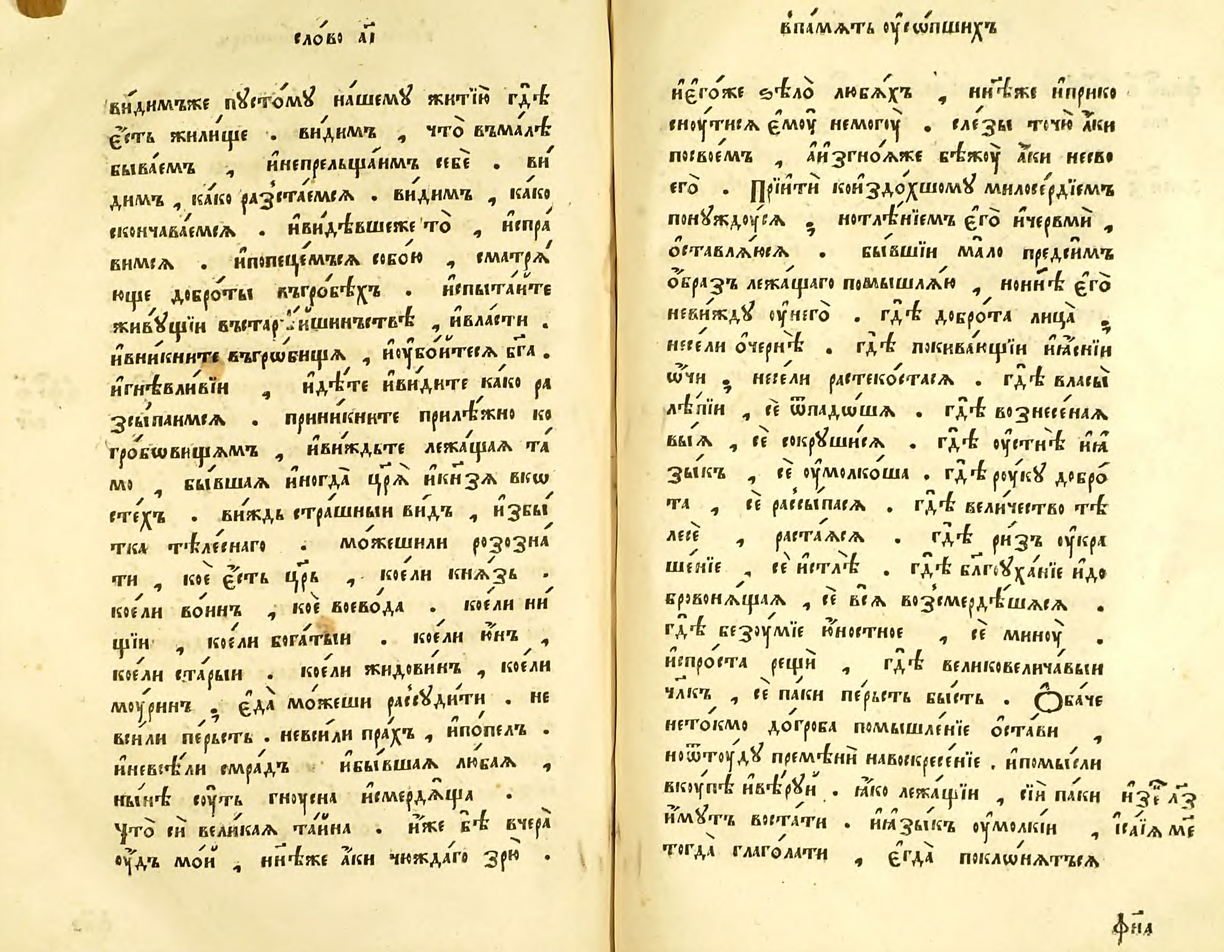 сло́во а҃і
ви́димъже пꙋсто́мꙋ на́шемꙋ житїю̀ гдѣ̀
є҆́сть жили́ще . ви́димъ , что̀ въма́лѣ
быва́ем , и҆непрельща́имъ себѐ . ви́
димъ , ка́ко раз̾ста́емсѧ . ви́димъ , ка́ко
сконча́ваемсѧ . и҆ви́дѣвшеже то̀ , и҆спра́
вимсѧ . и҆попеце́мъсѧ собо́ю , сматрѧ́
юще добро́ты въгро́бѣхъ . и҆спыта́ите
живꙋ́щїи въстарѣ́ишинъствѣ , и҆вла́сти .
и҆вни́кните въгрѡ́бища , и҆оу҆бо́итесѧ бг҃а .
и҆гнѣвли́вїи , и҆дѣ́те и҆ви́дите ка́ко ра
зсы́паимсѧ . прини́кните прилѣ́жно ко
гробѡ́вищѧмъ , и҆ви́ждьте лежа́щаѧ та́
мо , бы́вшаѧ и҆ногда̀ цр҃ѧ̀ и҆кн҃зѧ вкѡ
сте́хъ . ви́ждь стра́шныи ви́дъ , и҆збы́
тка тѣле́снаго . мо́жешили розозна́
ти , коѐ є҆́сть цр҃ь , кое́ли кнѧ́зь .
кое́ли во́инъ , коѐ воево́да . кое́ли ни́
щїи , кое́ли бога́тыи . кое́ли ю҆́нъ ,
кое́ли ста́рыи . кое́ли жидови́нъ , кое́ли
моу́ринъ ; є҆да̀ мо́жеши рассꙋди́ти . не
вси́ли пе́рьсть . невси́ли пра́хъ , и҆по́пелъ .
и҆невсѣ́ли смра́дъ и҆бы́вшаѧ лю́баѧ ,
ны́нѣ соу́ть гноу́сна и҆смердѧ́ща .
Что̀ сѝ вели́каѧ та́ина . и҆́же бѣ̀ вчера̀
оу҆́дъ мо́й , ни҃ѣже а҆́ки чю́ждаго зрю̀ .
впа́мѧть оу҆со́пшихъ
и҆є҆го́же ѕѣло̀ люблѧ́хъ , ни҃ѣже и҆прико
сноу́тисѧ є҆моу̀ немогоу̀ . сле́зы точю̀ а҆́ки
посвое́мъ , а҆и҆згно́ѧже бѣжоу̀ а҆́ки несво
его̀ . Прїитѝ коиздо́хшомꙋ милосе́рдїемъ
понꙋждоу́сѧ ; нотлѣ́нїемъ є҆го̀ и҆червмѝ ,
о҆ставлѧ́юсѧ . бы́вшїи ма́ло предси́мъ
о҆́бразъ лежа́щаго помышлѧ́ю , нони҃ѣ є҆го̀
неви́ждꙋ оу҆него̀ . гдѣ̀ добро́та лица̀ ;
несе́ли о҆чернѣ̀ . гдѣ̀ покива́ющїи и҆ꙗ҆́снїи
ѻ҆́чи ; несе́ли растеко́стасѧ . гдѣ̀ власы̀
лѣ́пїи , сѐ ѿпадо́шѧ . гдѣ̀ вознесе́наѧ
вы́ѧ , сѐ сокрꙋши́сѧ . гдѣ̀ оу҆стнѣ̀ и҆ꙗ҆
зы́къ , сѐ оу҆молко́ша . гдѣ̀ роу́кꙋ добро́
та , сѐ рассы́пасѧ . гдѣ̀ вели́чество тѣ
лесѐ , раста́ѧсѧ . гдѣ̀ ри́зъ оу҆кра
ше́нїе , сѐ и҆стлѣ̀ . гдѣ̀ бл҃гоуха́нїе и҆до
бровонѧ́щаѧ , сѐ всѧ̀ воз̾смердѣ́шѧсѧ .
гдѣ̀ безоу́мїе ю҆́ностное , сѐ миноу̀ .
и҆спро́ста рещѝ , гдѣ̀ великовелича́выи
чл҃къ , сѐ па́ки пе́рьсть бы́сть . Ѻ҆ба́че
нето́кмо до́гроба помышле́нїе о҆ста́ви ,
ноѿтоу́дꙋ премѣнѝ навоскресе́нїе . и҆помы́сли
вкоу́пѣ и҆вѣ́руй . ꙗ҆́ко лежа́щїи , сїѝ па́ки
и҆́мꙋтъ воста́ти . и҆ꙗ҆зы́къ оу҆мо́лкїи ,
тогда̀ глаго́лати , є҆гда̀ поклонѧ́тьсѧ
и҆зе҃ л҃з
і҆са́їѧ м҃е
ф҃на